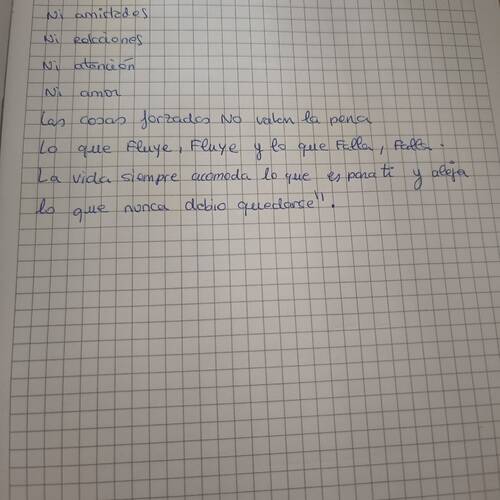 Ni amistades
Ni relaciones
Ni atención
Ni amor
Las cosas forzadas No valen la pena
Lo que Fluye, Fluye y lo que Falla, Falla.
La vida siempre acomoda lo que es para ti y aleja
lo que nunca debio quedarse".